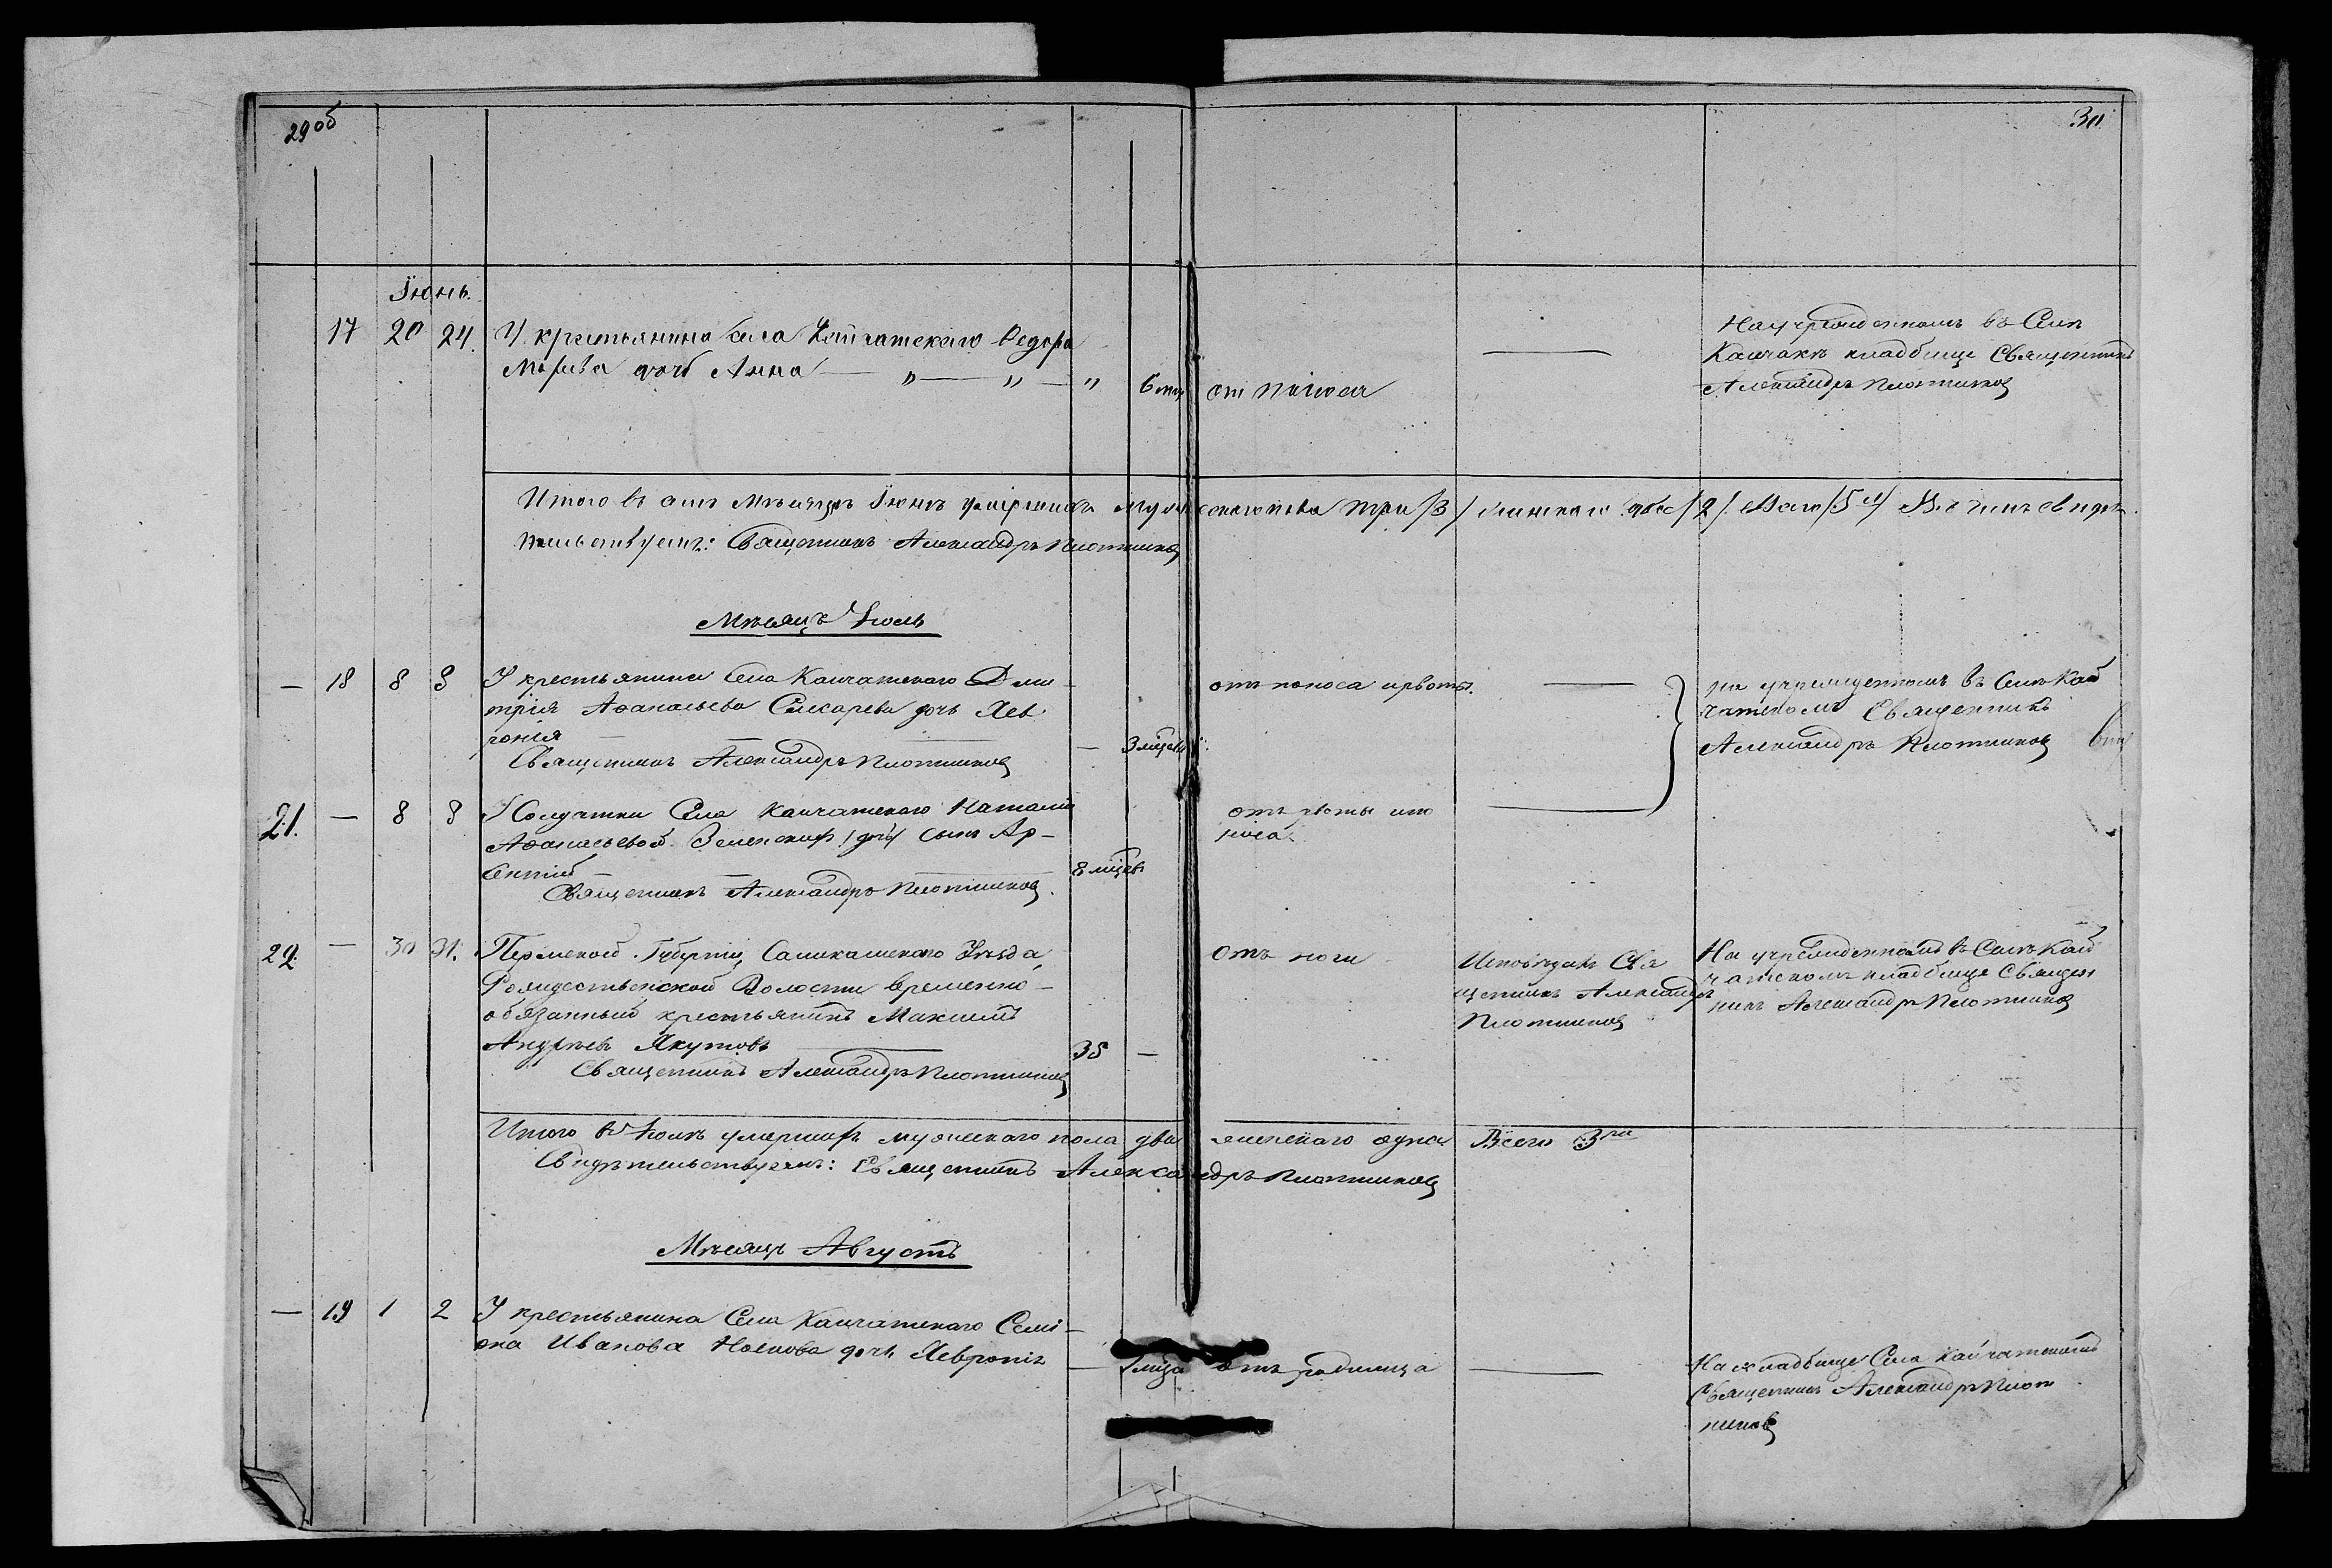 29об
30
Іюнь.
17 20 24. У крестьянина села Кайчатскаго Ѳедора
дочь Анна — „ — „ — „ 6 мц от поноса
На учрежденномъ въ Селѣ
кладбище Священникъ
Александръ Плотниковъ
Итого въ Іюнѣ умершихъ мужескаго пола три /3/ женскаго двѣ /2/ Всего /5ть/ В чемъ свидѣ-
тельствуетъ: Священникъ Александръ Плотниковъ
Мѣсяцъ Іюль
— 18 8 8 У крестьянина Села Кайчатскаго Дми-
трія Аѳанасьева дочь Яев-
гонія — 3 мцевъ
Священникъ Александръ Плотниковъ
отъ поноса и рвоты. —
на учрежденномъ въ Селѣ Кай
чатскомъ Священникъ
Александръ Плотниковъ
21. — 8 8 Солдатки Села Кайчатскаго Наталіи
Аѳанасьевой /дочь/ сынъ Ар-
сентій 8 мцевъ
Священникъ Александръ Плотниковъ.
отъ рвоты и по
носа —
22. — 30 31. Пермской Губерніи Соликамскаго Уѣзда,
Рождественской Волости временно-
обязанный крестьянинъ Максимъ
Андреевъ Якутовъ 35 —
Священникъ Александръ Плотниковъ
отъ ноги
Исповѣдан Свя
щенникъ Александръ
Плотниковъ
На учрежденномъ в Селѣ Кай
чатскомъ кладбище Священ
никъ Александръ Плотниковъ
Итого въ Іюлѣ умершихъ мужескаго пола два женскаго одна Всего 3ри
Свидѣтельствуетъ: Священникъ Александръ Плотниковъ
Мѣсяцъ Августъ
— 19 1 2 У крестьянина Села Кайчатскаго Семі-
она Иванова Носкова дочь
— 1 мца отъ родимца —
На кладбище Села Кайчатскаго
Священникъ Александръ Плот
никовъ